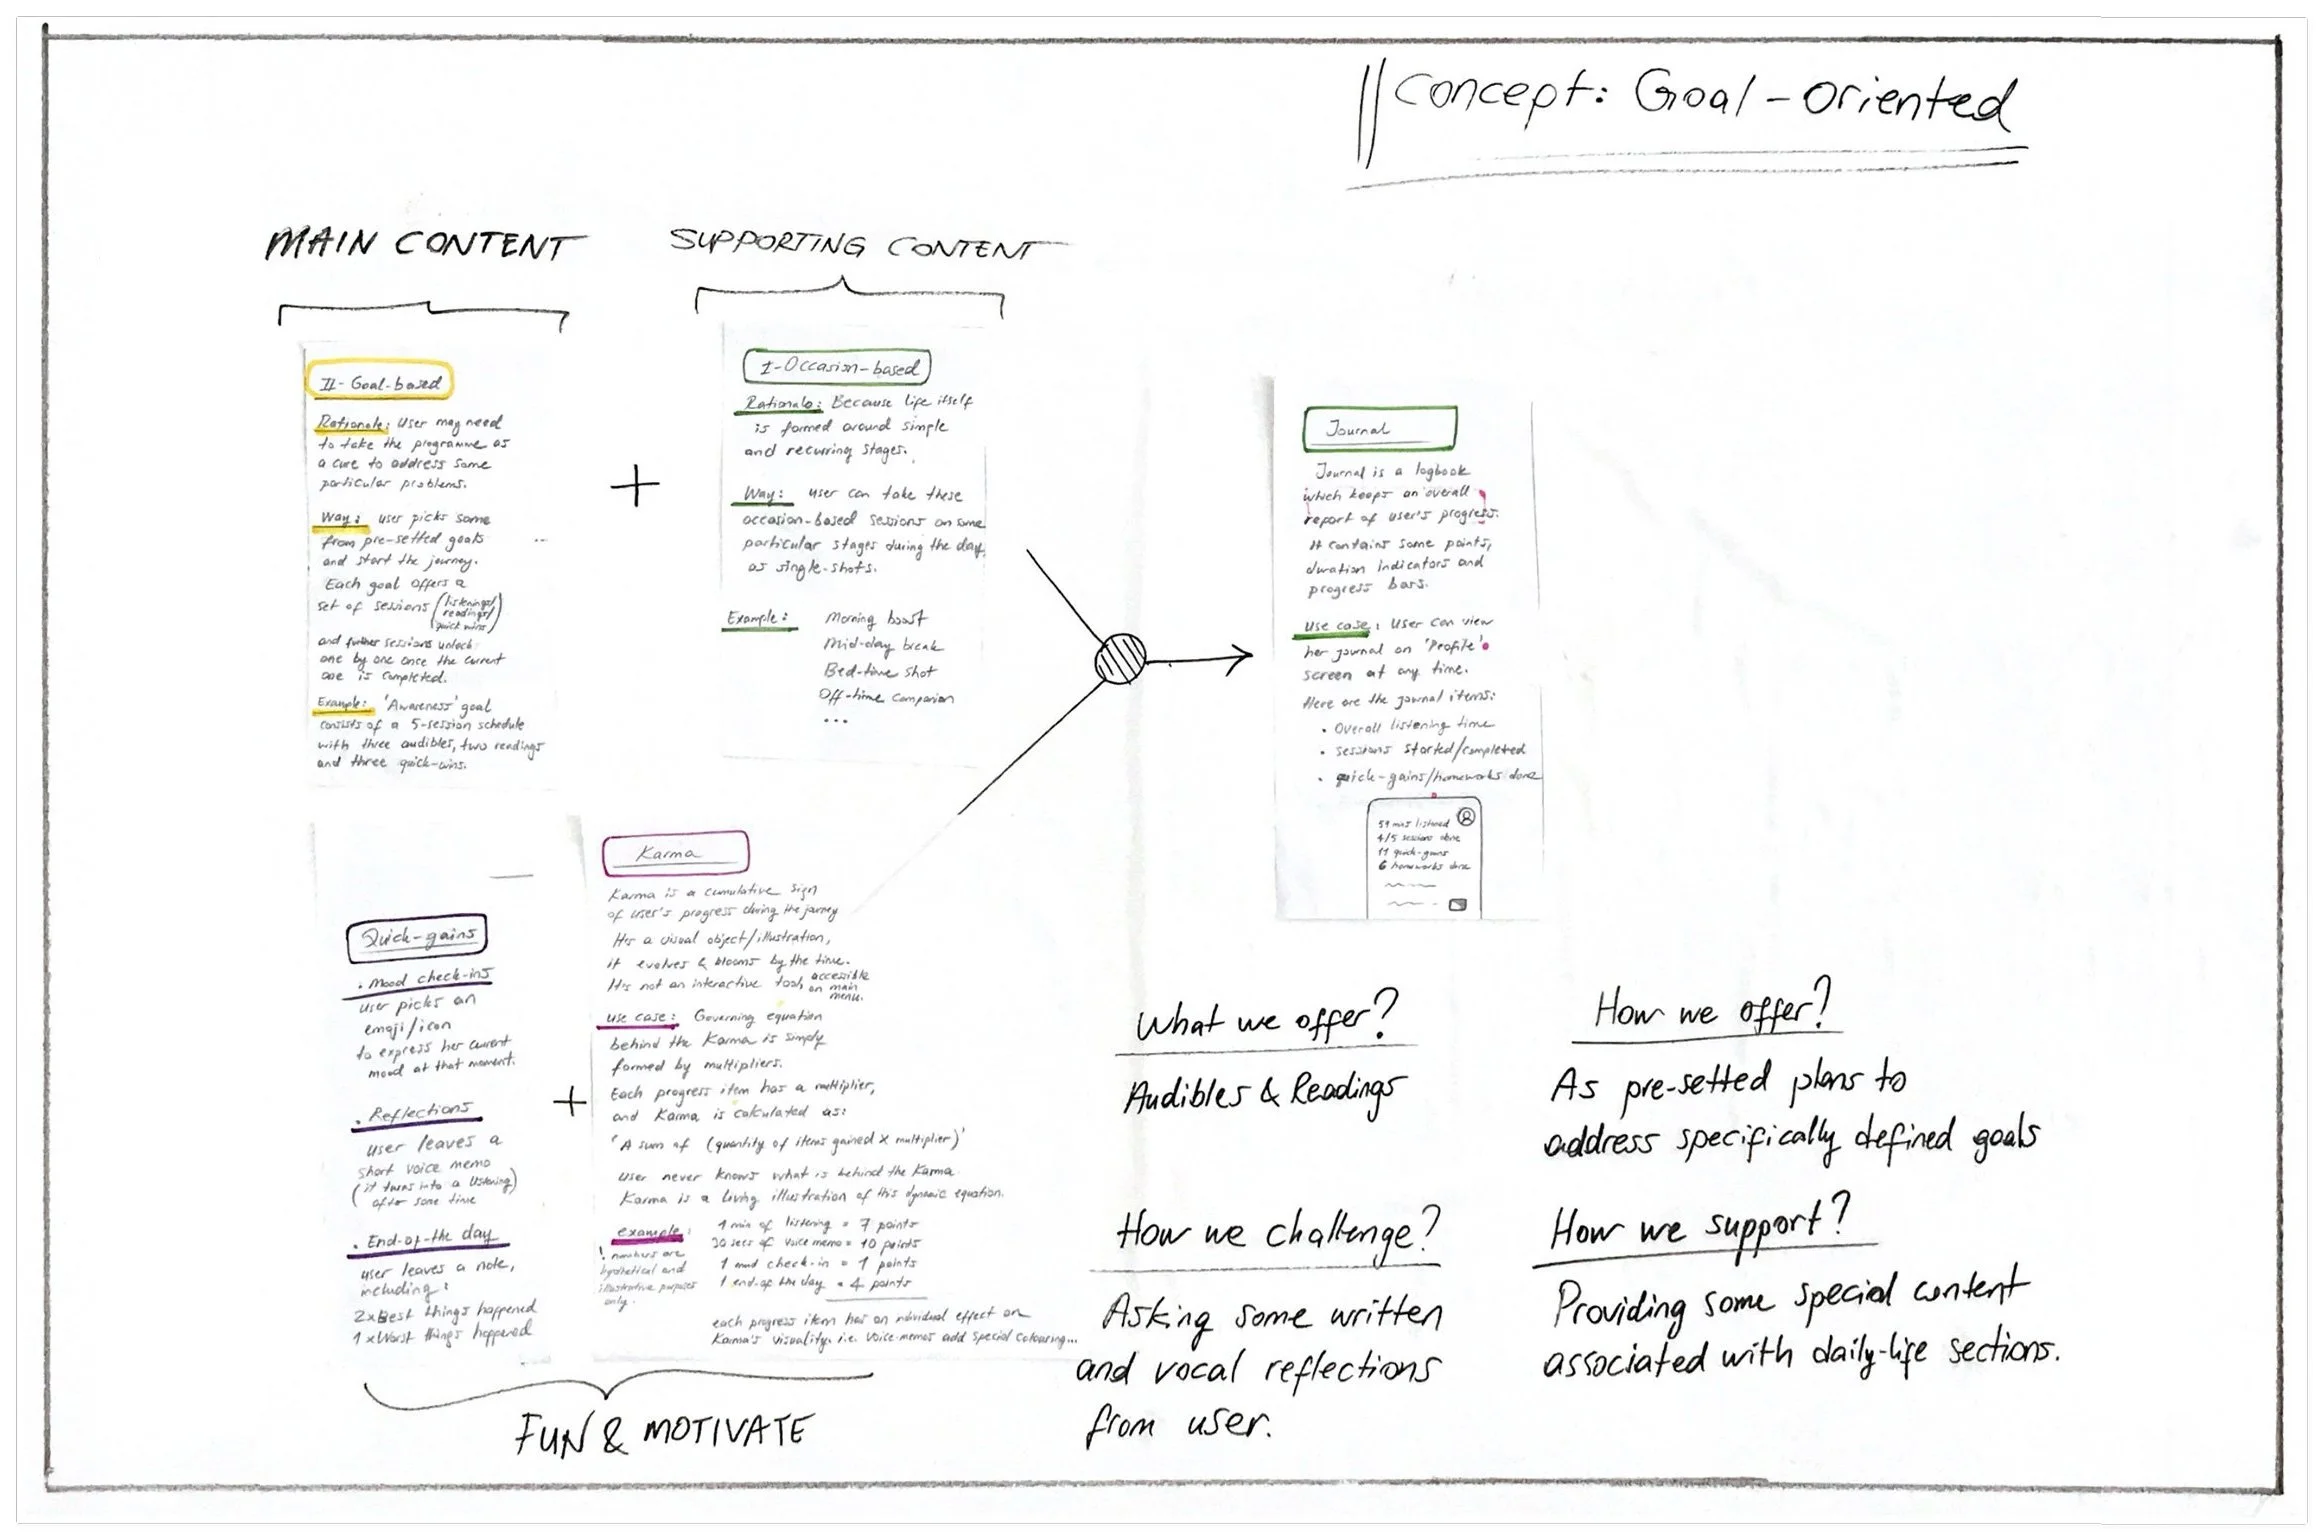 Concept: Goal-Oriented
MAIN CONTENT
SUPPORTING CONTENT
II- Goal-based
Rationale: User may need
to take the programme as
a cure to address some
particular problems.
Way: user picks some
from pre-setted goals
and start the journey.
Each goal offers a
set of sessions (listenings/
readings/
quick wins)
and further sessions unlock
one by one once the current
one is completed.
Example: 'Awareness' goal
consists of a 5-session schedule
with three audibles, two readings
and three quick-wins.
+
I-Occasion-based
Rationale: Because life itself
is formed around simple
and recurring stages.
Way: user can take these
occasion-based sessions on some
particular stages during the day,
as single-shots.
Example: Morning boost
Mid-day break
Bed-time shot
Off-time companion
...
Journal
Journal is a logbook
which keeps an overall
report of user's progress.
It contains some points,
duration indicators and
progress bars.
Use case: User can view
her journal on 'Profile'
screen at any time.
Here are the journal items:
• Overall listening time
• sessions started/completed
• quick-gains/homeworks done
59 mins listened
4/5 sessions done
11 quick-gains
6 homeworks done
Quick-gains
• Mood check-ins
user picks an
emoji/icon
to express her current
mood at that moment.
• Reflections
user leaves a
short voice memo
(it turns into a listening)
after some time
• End-of-the day
user leaves a note,
including:
2xBest things happened
1xWorst things happened
+
Karma
Karma is a cumulative sign
of user's progress during the journey
It's a visual object/illustration,
it evolves & blooms by the time.
It's not an interactive tool, accessible
on main
menu.
Use case: Governing equation
behind the Karma is simply
formed by multipliers.
Each progress item has a multiplier,
and Karma is calculated as:
'A sum of (quantity of items gained x multiplier)'
User never knows what is behind the Karma
Karma is a living illustration of this dynamic equation.
example:
! numbers are
hypothetical and
illustrative purposes
only.
1 min of listening = 7 points
30 secs of voice memo = 10 points
1 mood check-in = 1 points
1 end-of the day = 4 points
each progress item has an individual effect on
Karma's visuality. i.e. voice-memos add special colouring...
FUN & MOTIVATE
What we offer?
Audibles & Readings
How we offer?
As pre-setted plans to
address specifically defined goals
How we challenge?
Asking some written
and vocal reflections
from user.
How we support?
Providing some special content
associated with daily-life sections.